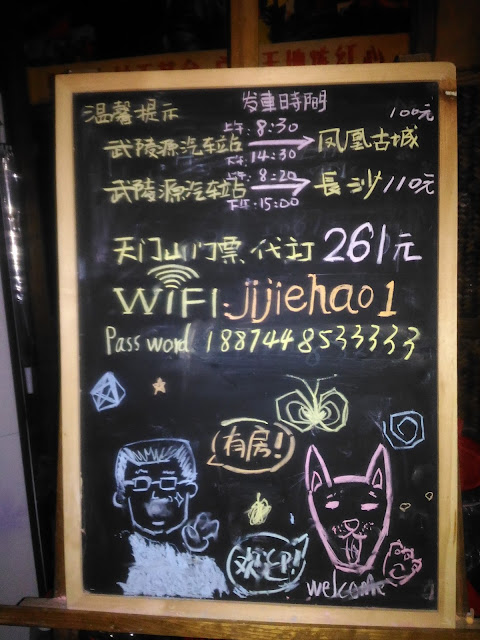 温馨提示
发車時間
100元
上午: 8:30
武陵源汽车站 → 凤凰古城
下午: 14:30
上午: 8:20
武陵源汽车站 → 長沙 110元
下午: 15:00
天门山门票代订 261元
WiFi: jijiehao1
Pass word 1887448533333
有房!
欢迎!
welcome